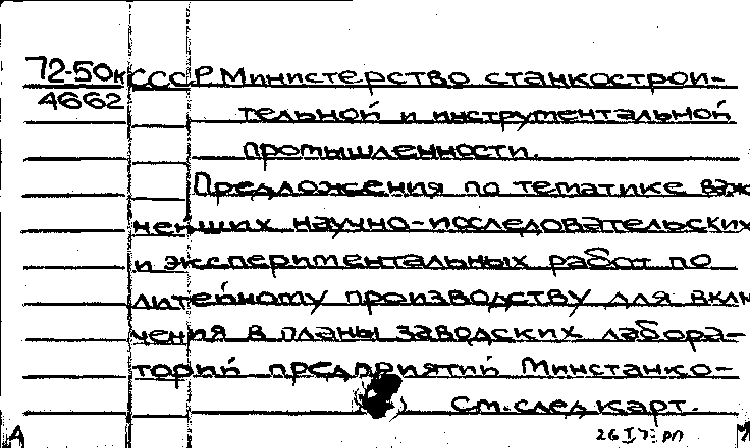 72-50к СССР Министерство станкострои-
4662
тельной и инструментальной
промышленности.
Предложения по тематике важ
нейших научно-исследовательских
и экспериментальных работ по
литейному производству для вклю
чения в планы заводских лабора-
торий предприятий Минстанко-
См. след карт.
А 26 I 73 рп